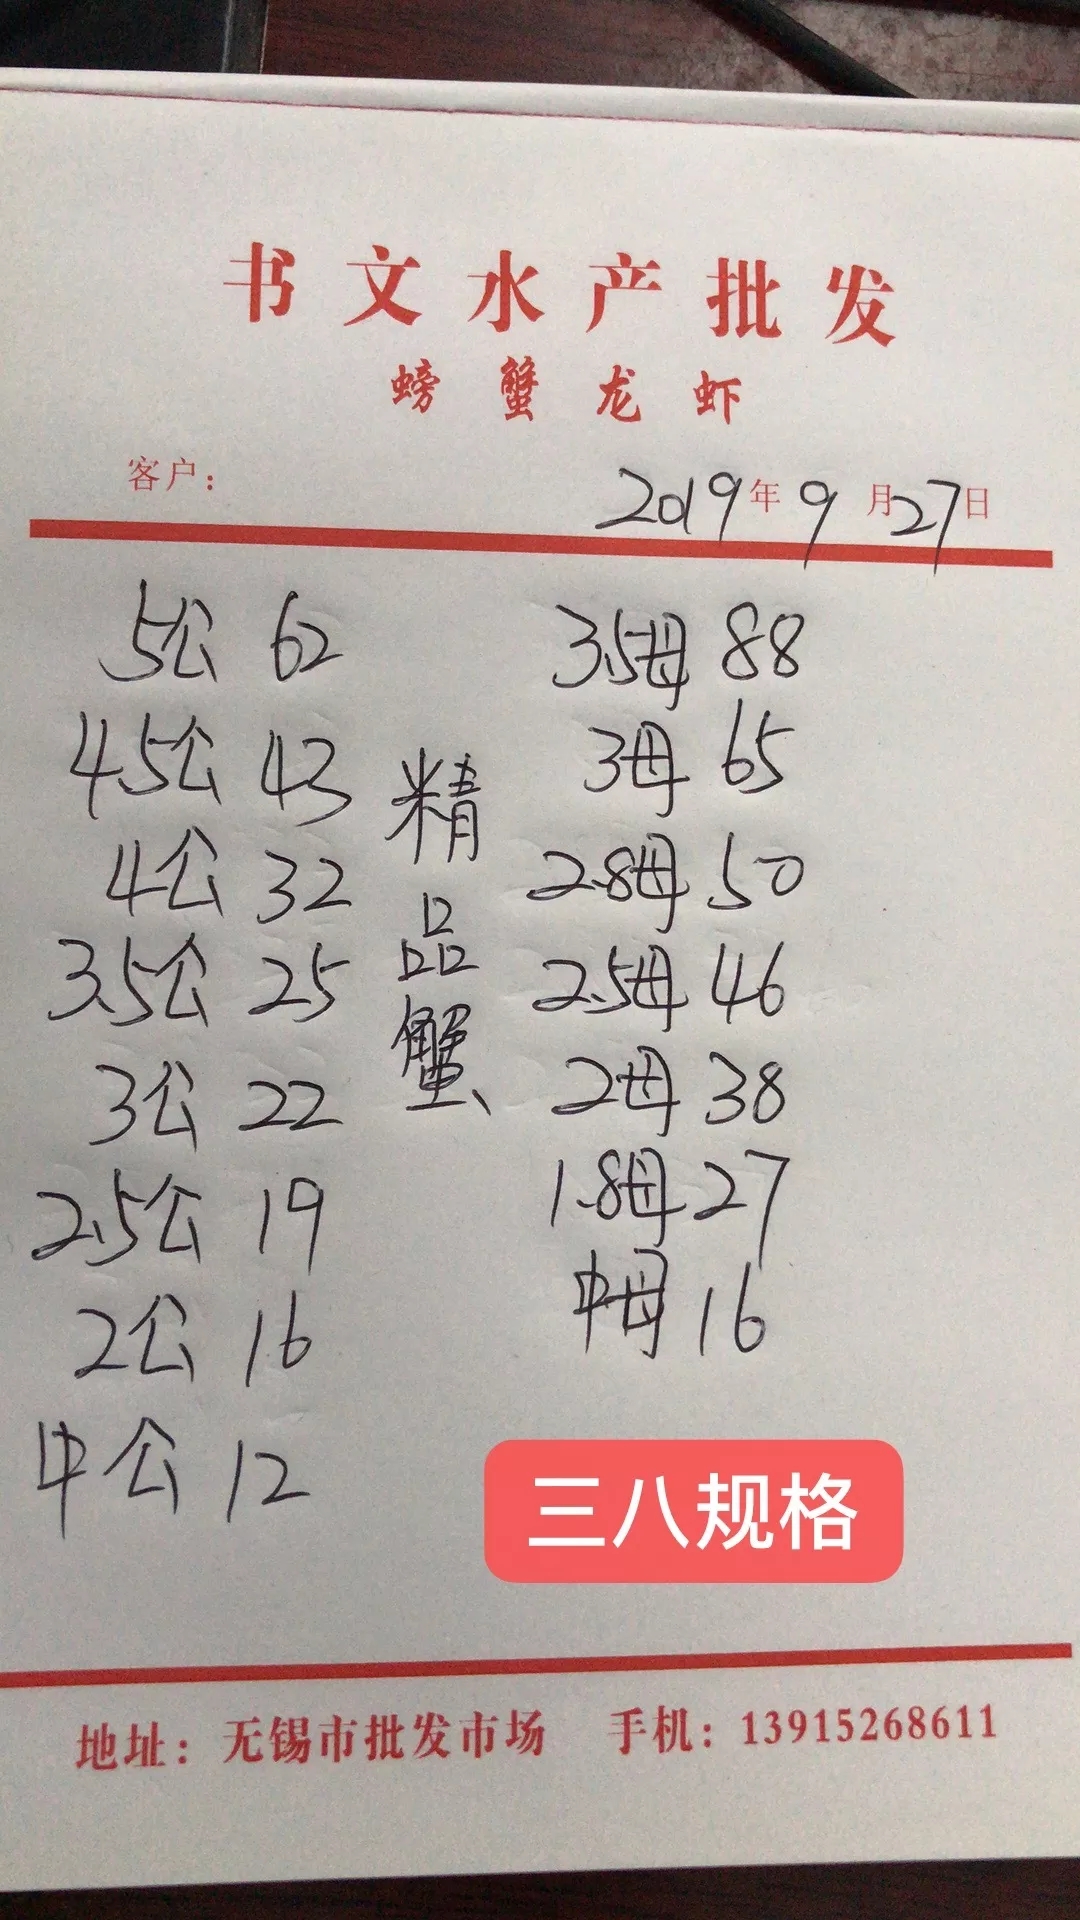 书文水产批发
螃蟹龙虾
客户： 2019年9月27日
5公 62
4.5公 43
4公 32
3.5公 25
3公 22
2.5公 19
2公 16
中公 12
精品蟹
3.5母 88
3母 65
2.8母 50
2.5母 46
2母 38
1.8母 27
中母 16
三八规格
地址：无锡市批发市场 手机：13915268611